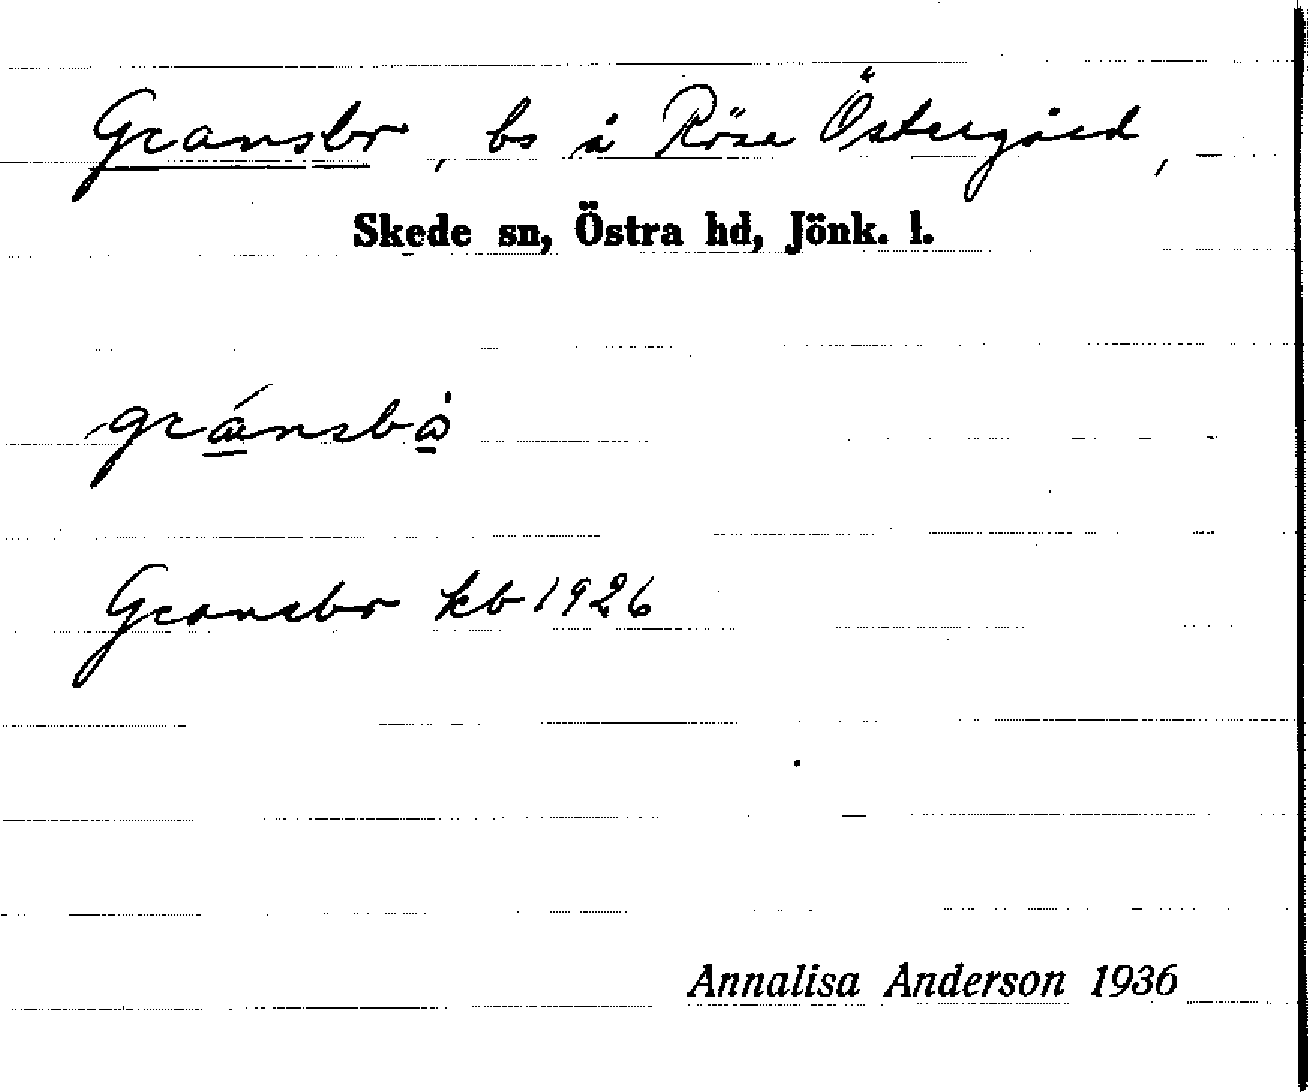 Gransbo, bs å Röse Östergård,
Skede sn, Östra hd, Jönk. l.
gránsbå̇
Gransbo kb 1926
Annalisa Anderson 1936